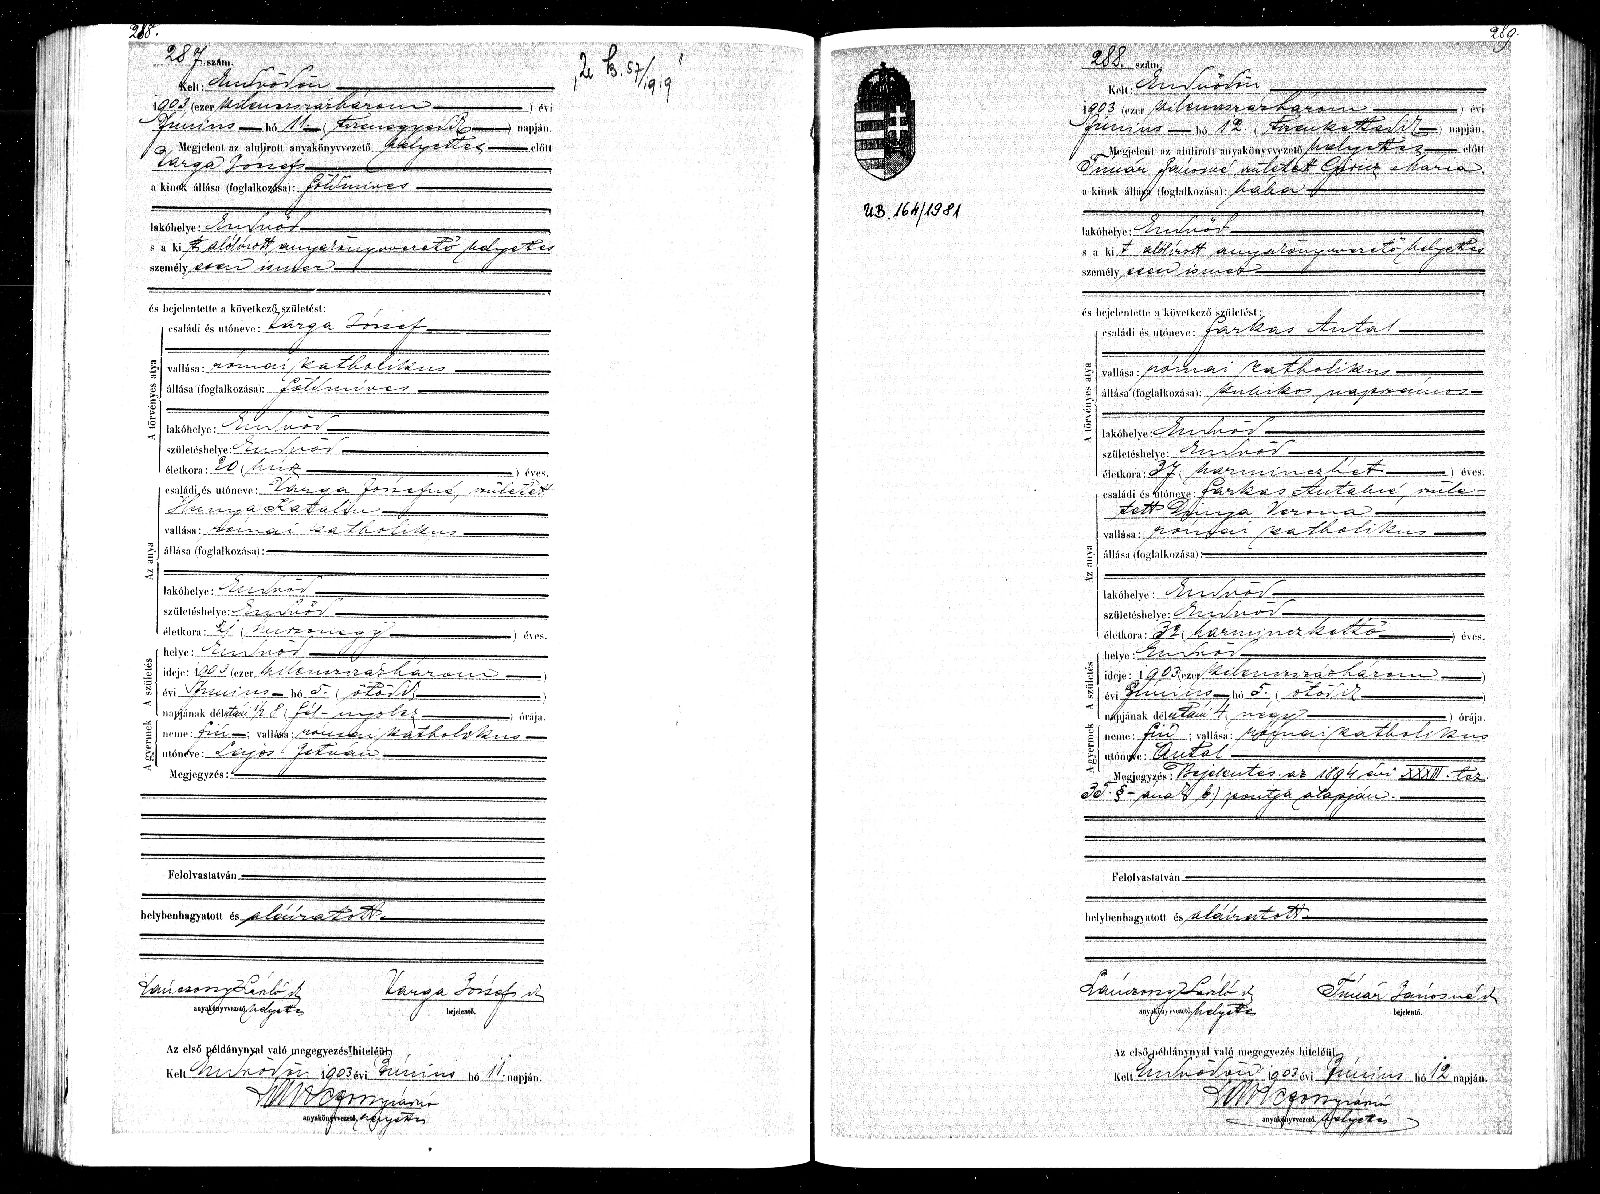 288.
287 szám.
Kelt: Endrődön
1903 (ezer kilencszázhárom) évi
Június hó 11 (tizenegyedik) napján.
Megjelent az alulirott anyakönyvvezető helyettes előtt
Varga József
a kinek állása (foglalkozása): földmíves
lakóhelye: Endrőd
s a ki t alólírott anyakönyvvezető helyettes
személyesen ismer
és bejelentette a következő születést:
A törvényes atya
családi és utóneve: Varga József
vallása: római katholikus
állása (foglalkozása): földmíves
lakóhelye: Endrőd
születéshelye: Endrőd
életkora: 20 (húsz) éves.
Az anya
családi és utóneve: Varga Józsefné, született
Hunya Katalin
vallása: római katholikus
állása (foglalkozása):
lakóhelye: Endrőd
születéshelye: Endrőd
életkora: (huszonegy) éves.
A születés
helye: Endrőd
ideje: 1903 (ezer kilencszázhárom)
évi Június hó 5. (ötödik)
napjának délután 1/2 8 (fél-nyolcz) órája.
A gyermek
neme: fiú; vallása: római katholikus
utóneve: Lajos István
Megjegyzés:
Felolvastatván
helybenhagyatott és aláíratott.
László
anyakönyvvezető helyettes
Varga József
bejelentő.
Az első példánynyal való megegyezés hiteléül
Kelt Endrődön 1903 évi Június hó 11. napján.
anyakönyvvezető helyettes
289.
UB. 164/1981
288. szám.
Kelt: Endrődön
1903 (ezer kilencszázhárom) évi
Június hó 12 (tizenkettedik) napján.
Megjelent az alulirott anyakönyvvezető helyettes előtt
Tímár Jánosné született Mária
a kinek állása (foglalkozása): bába
lakóhelye: Endrőd
s a ki t alólírott anyakönyvvezető helyettes
személyesen ismer
és bejelentette a következő születést:
A törvényes atya
családi és utóneve: Farkas Antal
vallása: római katholikus
állása (foglalkozása): kubikos napszámos
lakóhelye: Endrőd
születéshelye: Endrőd
életkora: 37 (harminczhét) éves.
Az anya
családi és utóneve: Farkas Antalné, szüle-
tett Verona
vallása: római katholikus
állása (foglalkozása):
lakóhelye: Endrőd
születéshelye: Endrőd
életkora: 32 (harminczkettő) éves.
A születés
helye: Endrőd
ideje: 1903 (ezer kilencszázhárom)
évi Június hó 5. (ötödik)
napjának délután 4 (négy) órája.
A gyermek
neme: fiú; vallása: római katholikus
utóneve: Antal
Megjegyzés: Bejelentés az 1894 évi XXXIII. tcz
35. §-ának b) pontja alapján.
Felolvastatván
helybenhagyatott és aláíratott.
László
anyakönyvvezető helyettes
Tímár Jánosné
bejelentő.
Az első példánynyal való megegyezés hiteléül
Kelt Endrődön 1903 évi Június hó 12 napján.
anyakönyvvezető helyettes